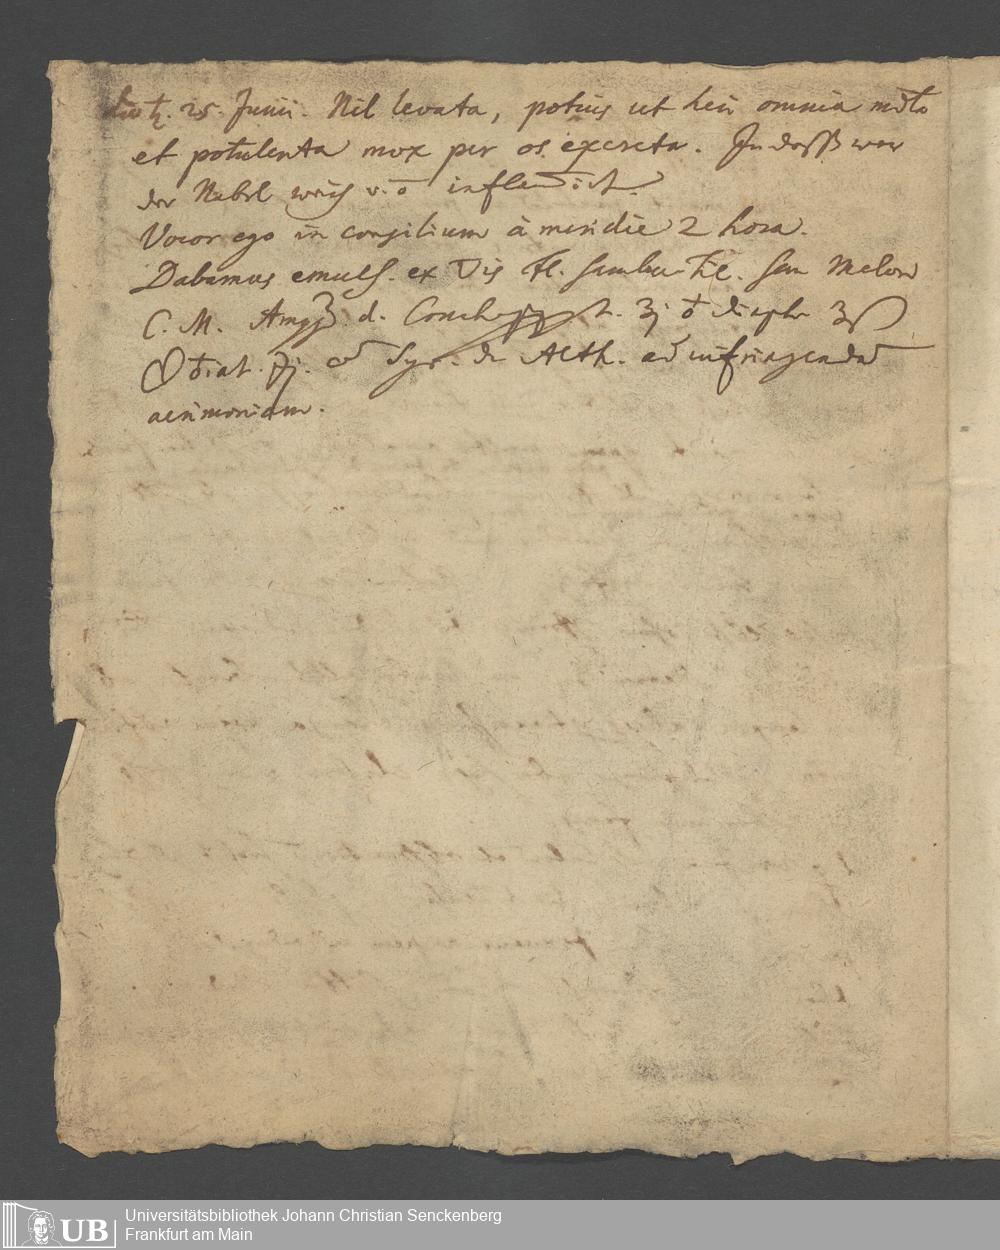 25. Junii. Nil levata, potius ut heri omnia
et potulenta mox per os excreta. Indeß war
der Nabel weich u. ō inflamirt.
Vocor ego in consilium à meridie 2 hora.
Dabamus emuls. ex ▽is fl. Sambu. Til. Sem Melon
C. M. d. Conch. ʒj ō diaph. ʒß
Syr. de Alth. ad infringendā
acrimoniam.
UB
Universitätsbibliothek Johann Christian Senckenberg
Frankfurt am Main